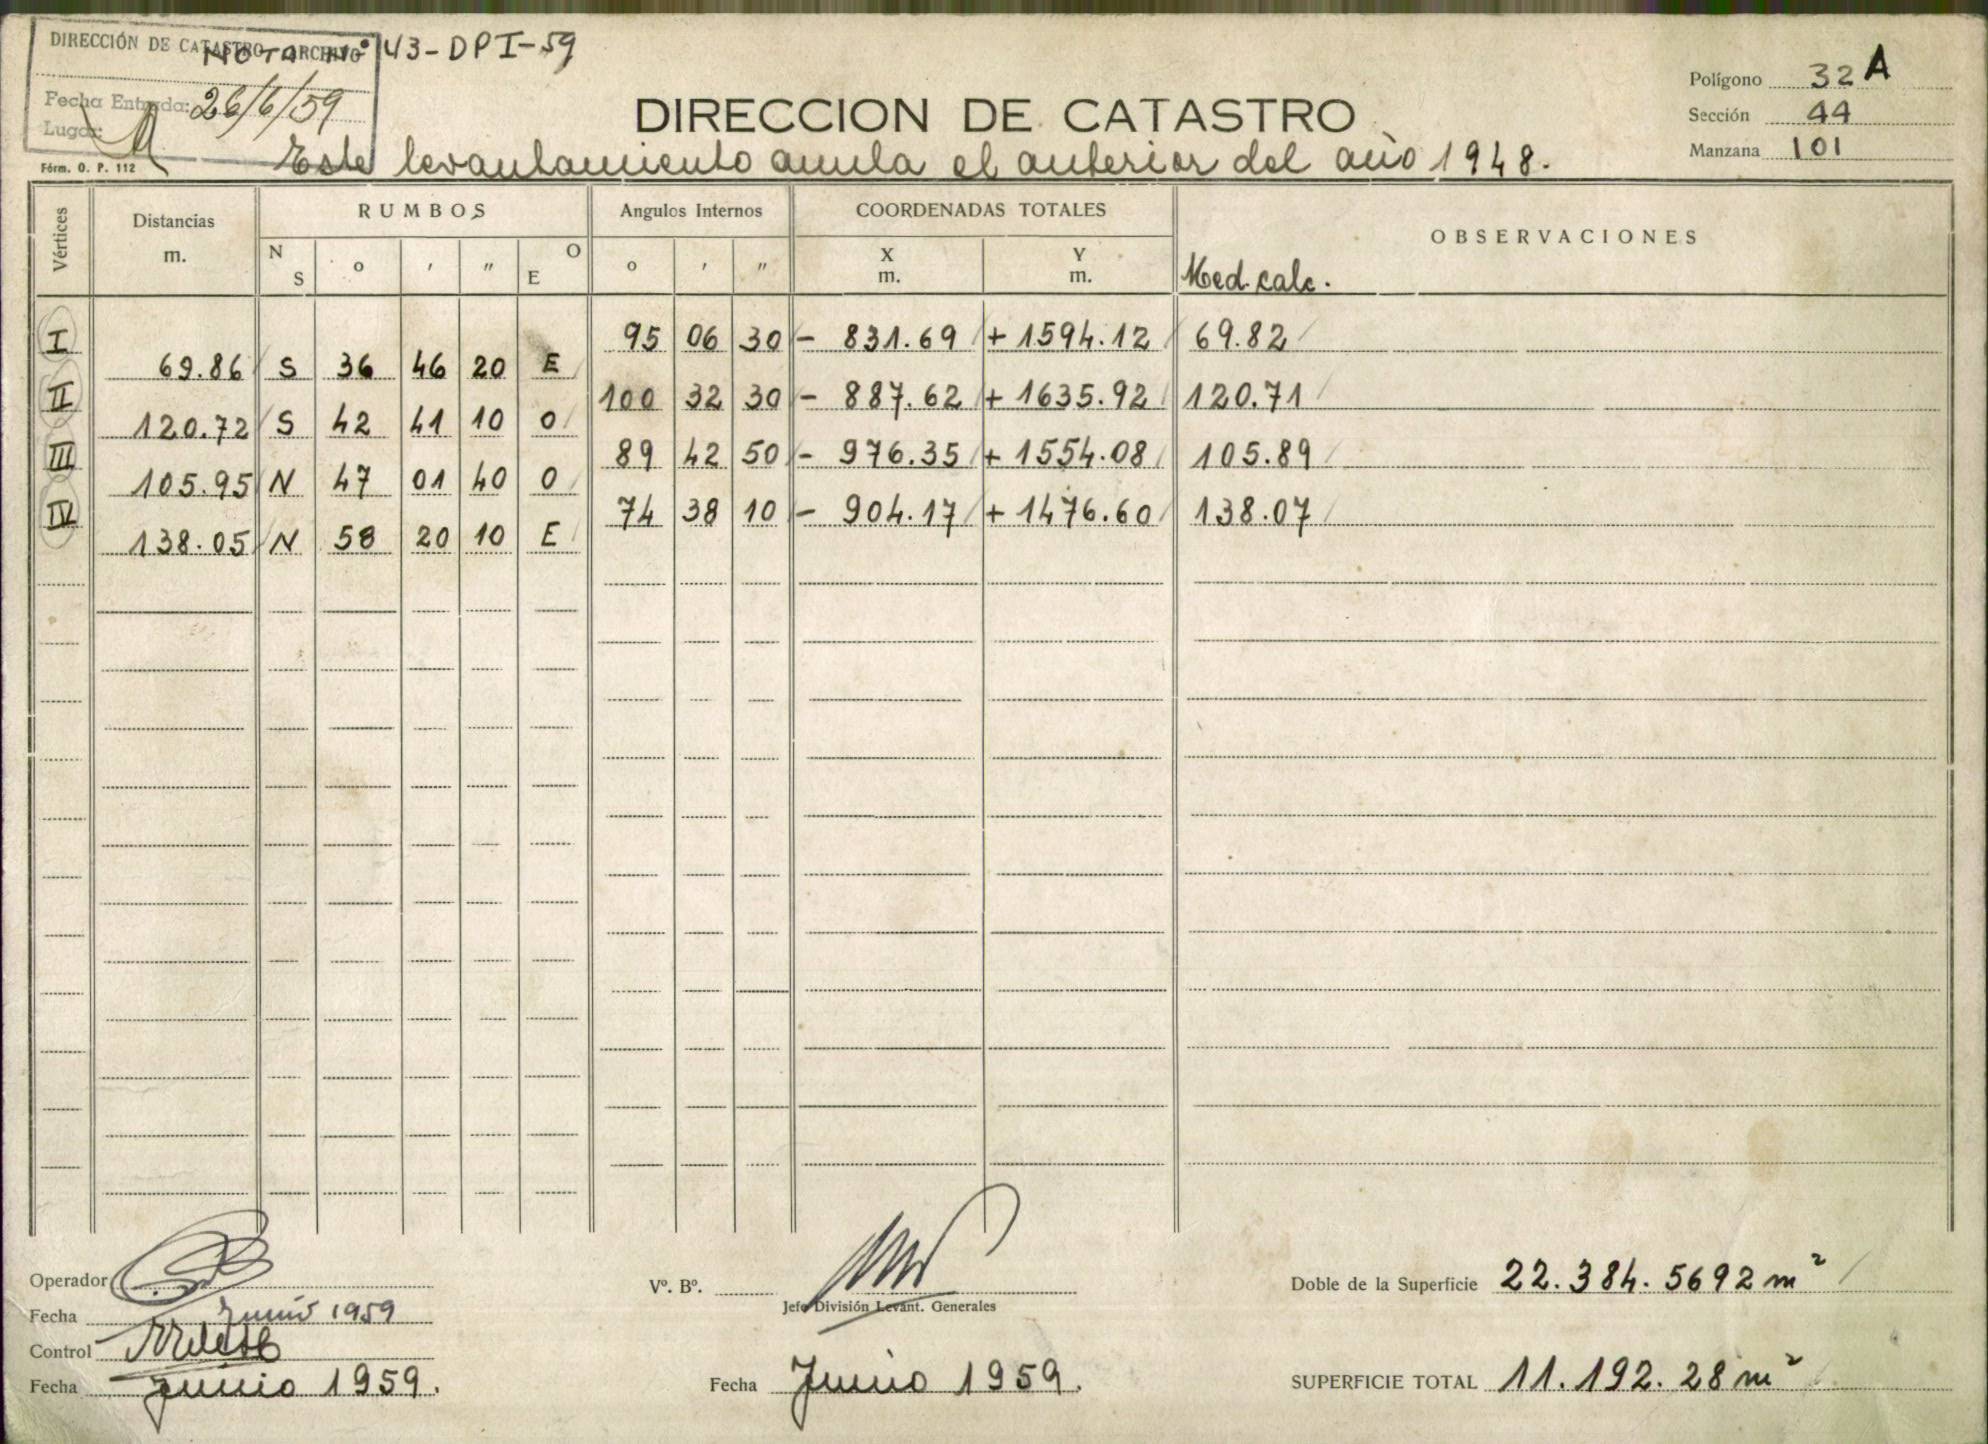 DIRECCIÓN DE CATASTRO - ARCHIVO
NOTA Nº 143-DPI-59
Fecha Entrada: 26/6/59
Lugar:
Fórm. O. P. 112
DIRECCION DE CATASTRO
Polígono 32 A
Sección 44
Manzana 101
Este levantamiento anula el anterior del año 1948.
Vértices Distancias m. RUMBOS Angulos Internos COORDENADAS TOTALES OBSERVACIONES
N S o ′ ″ O E o ′ ″ X m. Y m. Med. calc.
I 95 06 30 - 831.69 + 1594.12 69.82
69.86 S 36 46 20 E
II 100 32 30 - 887.62 + 1635.92 120.71
120.72 S 42 41 10 O
III 89 42 50 - 976.35 + 1554.08 105.89
105.95 N 47 01 40 O
IV 74 38 10 - 904.17 + 1476.60 138.07
138.05 N 58 20 10 E
Operador
Fecha Junio 1959
Control
Fecha Junio 1959.
Vº. Bº.
Jefe División Levant. Generales
Fecha Junio 1959.
Doble de la Superficie 22.384.5692 m²
SUPERFICIE TOTAL 11.192.28 m²